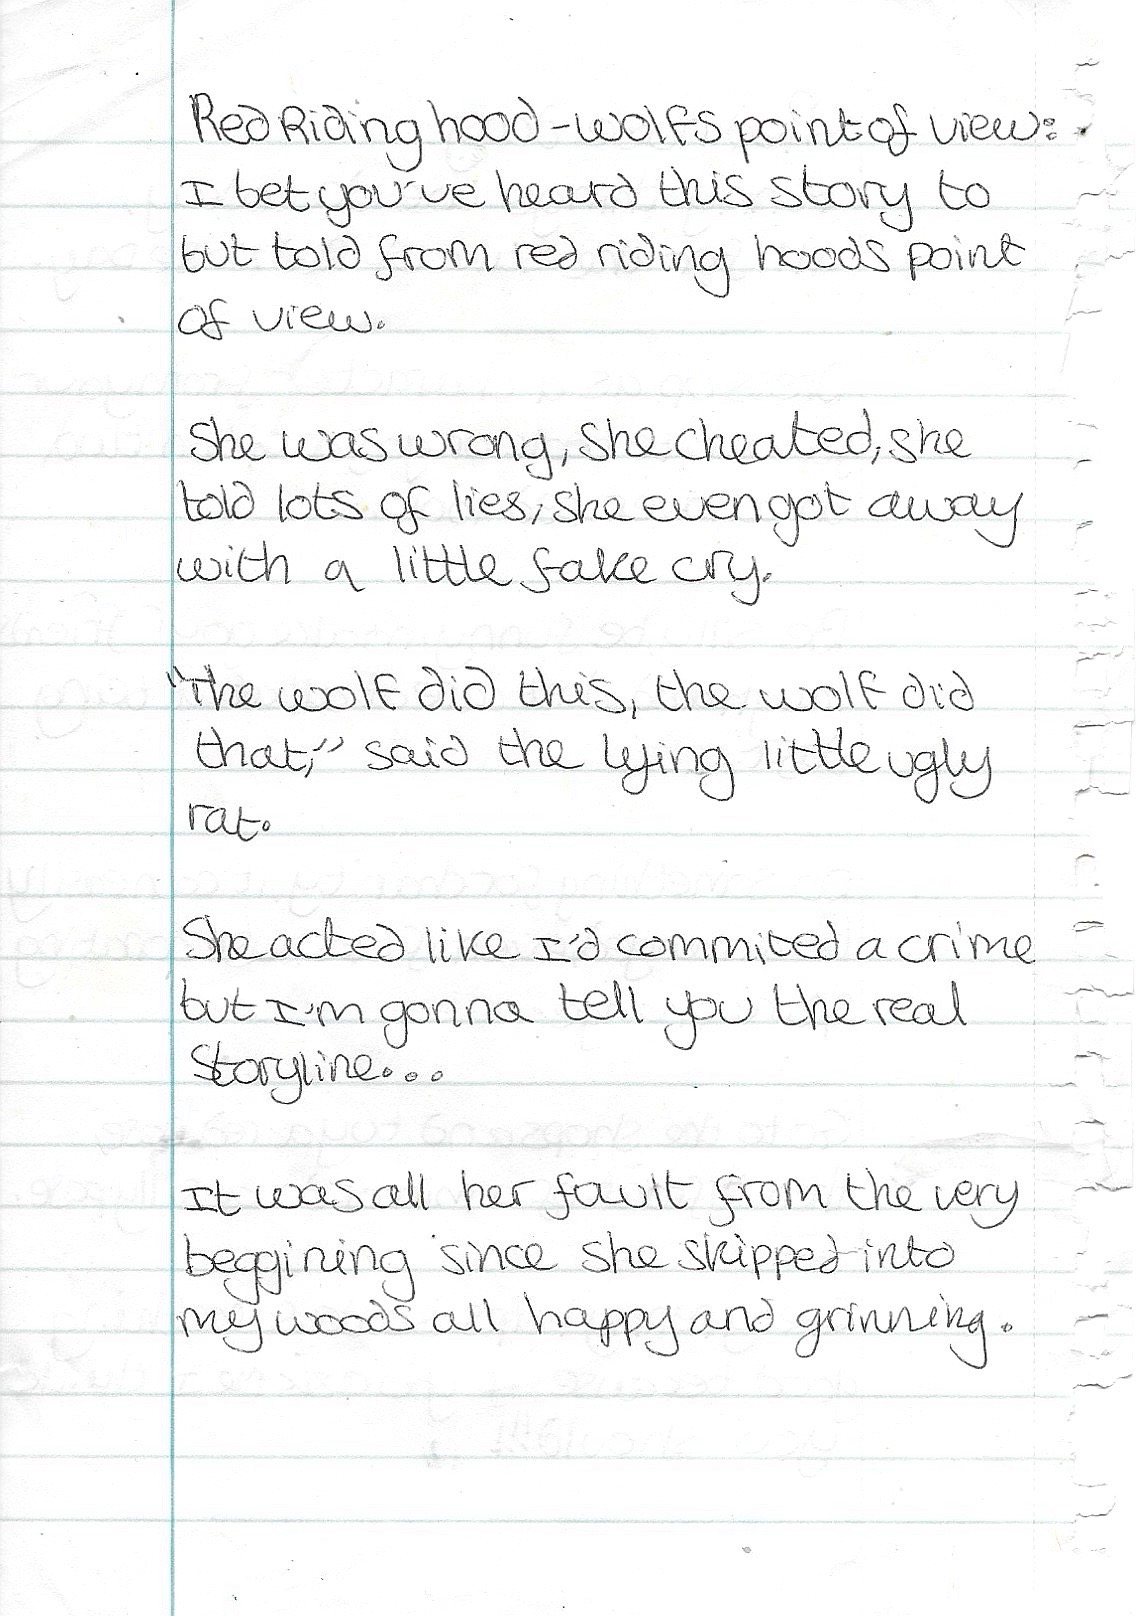 Red Riding hood - wolfs point of view:
I bet you've heard this story to
but told from red riding hoods point
of view.
She was wrong, She cheated, she
told lots of lies, She even got away
with a little fake cry.
"The wolf did this, the wolf did
that," said the lying little ugly
rat.
She acted like I'd commited a crime
but I'm gonna tell you the real
Storyline...
It was all her fault from the very
beggining since she skipped into
my woods all happy and grinning.